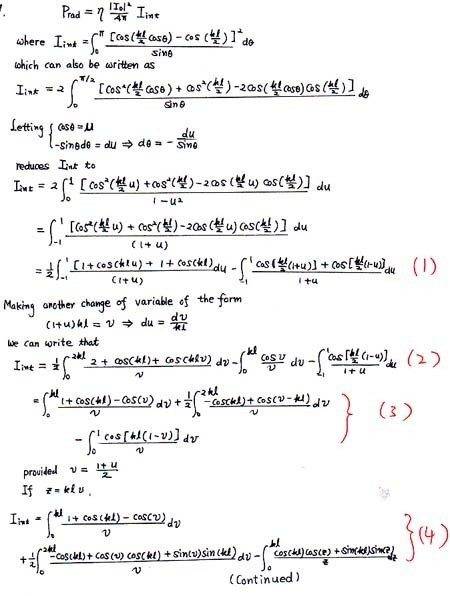 1.
Prad = η |I₀|²/4π Iint
where Iint = ∫₀^π [cos(kl/2 cosθ) - cos(kl/2)]²/sinθ dθ
which can also be written as
Iint = 2 ∫₀^{π/2} [cos²(kl/2 cosθ) + cos²(kl/2) - 2cos(kl/2 cosθ)cos(kl/2)]/sinθ dθ
Letting { cosθ = u
-sinθdθ = du ⇒ dθ = - du/sinθ
reduces Iint to
Iint = 2 ∫₀¹ [cos²(kl/2 u) + cos²(kl/2) - 2cos(kl/2 u) cos(kl/2)]/1-u² du
= ∫₋₁¹ [cos²(kl/2 u) + cos²(kl/2) - 2cos(kl/2 u) cos(kl/2)]/(1+u) du
= 1/2 ∫₋₁¹ [1 + cos(klu) + 1 + cos(kl)]/(1+u) du - ∫₋₁¹ cos[kl/2(1+u)] + cos[kl/2(1-u)]/1+u du (1)
Making another change of variable of the form
(1+u)kl = v ⇒ du = dv/kl
we can write that
Iint = 1/2 ∫₀^{2kl} 2 + cos(kl) + cos(klv)/v dv - ∫₀^{kl} cos v/v dv - ∫₋₁¹ cos[kl/2(1-u)]/1+u du (2)
= ∫₀^{kl} 1 + cos(kl) - cos(v)/v dv + 1/2 ∫₀^{2kl} -cos(kl) + cos(v-kl)/v dv
- ∫₀¹ cos[kl(1-v)]/v dv } (3)
provided v = 1+u/2
If z = klv,
Iint = ∫₀^{kl} 1 + cos(kl) - cos(v)/v dv
+ 1/2 ∫₀^{2kl} -cos(kl) + cos(v) cos(kl) + sin(v)sin(kl)/v dv - ∫₀^{kl} cos(kl)cos(z) + sin(kl)sin(z)/z dz } (4)
(Continued)